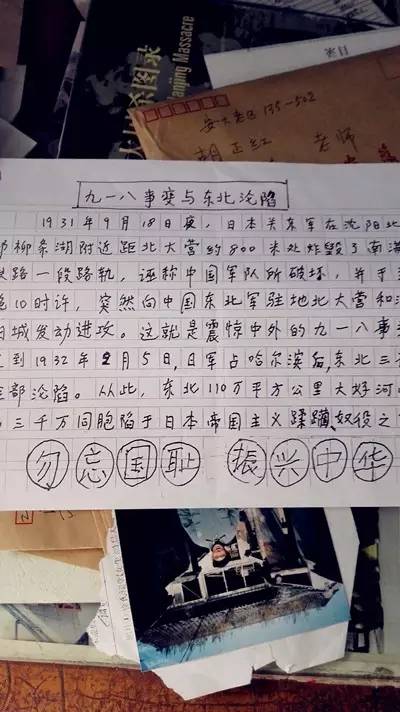 京大屠杀图录
Nanjing Massacre
类目
安大老区 135-502
胡正红 老师
九一八事变与东北沦陷
1931年9月18日夜,日本关东军在沈阳北
部柳条湖附近距北大营约800米处炸毁了南满
铁路一段路轨,诬称中国军队所破坏,并于当
晚10时许,突然向中国东北军驻地北大营和沈
阳城发动进攻。这就是震惊中外的九一八事
到1932年2月5日,日军占哈尔滨后,东北三
全部沦陷。从此,东北110万平方公里大好河
三千万同胞陷于日本帝国主义蹂躏、奴役之
勿忘国耻 振兴中华